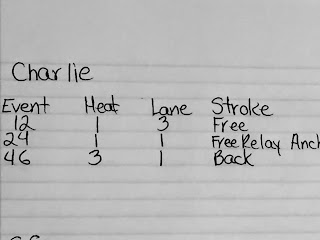 Charlie
Event Heat Lane Stroke
12 1 3 Free
24 1 1 Free Relay Anch
46 3 1 Back